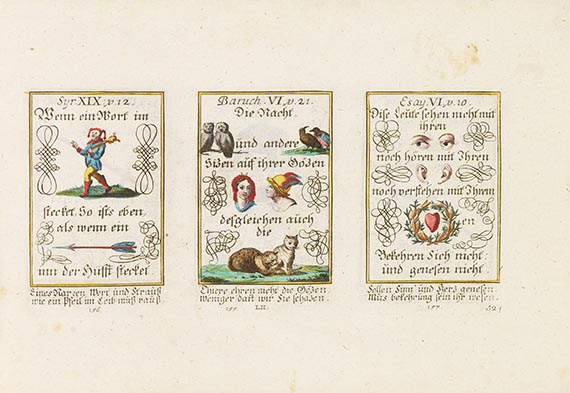 Syr XIX. v. 12.
Wenn ein Wort im
stecket. So ists eben
als wenn ein
inn der Hüfft stecket
Eines Narren Wort und Strauß
wie ein Pfeil im Leib muß rauß
Baruch. VI. v. 21.
Die Nacht
und andere
Sizen auf ihrer Gözen
desgleichen auch
die
ehren nicht die Gözen
Weniger daß wir Sie schäzen.
LII.
Esay. VI. v. 10.
Dise Leüte sehen nicht mit
ihren
noch hören mit Ihren
noch verstehen mit Ihrem
en
Bekehren Sich nicht
und genesen nicht.
Sollen Sinn und Herz genesen
Mus bekehrung sein ihr wesen.
52